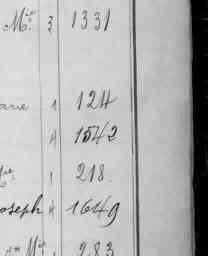 Mie. 3 1331
arie 1 124
4 1542
1 218
oseph 4 1649
Mie 1 283